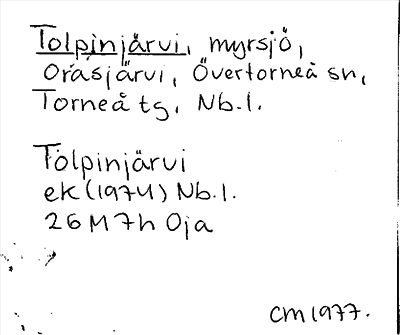 Tolpinjärvi, myrsjö,
Orasjärvi, Övertorneå sn,
Torneå tg, Nb.l.
Tolpinjärvi
ek (1974) Nb.l.
26 M 7h Oja
CM 1977.